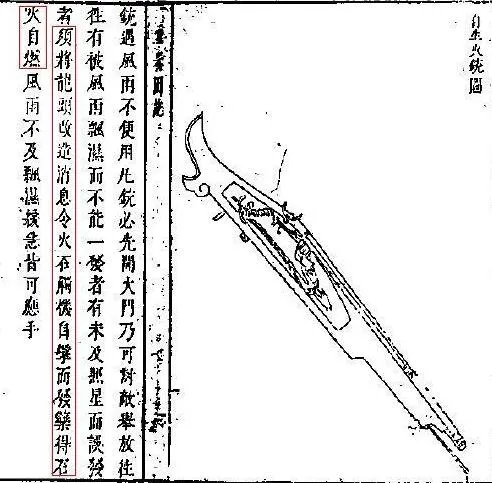 自生火銃圖
銃遇風雨不便用凡銃必先開火門乃可對敵舉放往
往有被風雨飄濕而不能一發者有未及照星而誤發
者須將龍頭改造消息令火石觸機自擊而發藥得石
火自燃風雨不及飄濕緩急皆可應手